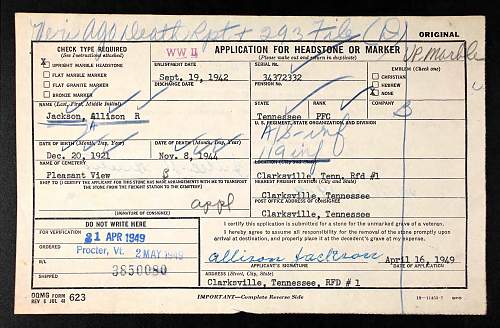 Veri AGO Death Rpt + 293 File (D)
ORIGINAL
CHECK TYPE REQUIRED
(See instructions attached)
X UPRIGHT MARBLE HEADSTONE
FLAT MARBLE MARKER
FLAT GRANITE MARKER
BRONZE MARKER
WW II
APPLICATION FOR HEADSTONE OR MARKER
(Please make out and return in duplicate)
UP. Marble
ENLISTMENT DATE
Sept. 19, 1942
DISCHARGE DATE
SERIAL No.
34372332
PENSION No.
EMBLEM (Check one)
CHRISTIAN
HEBREW
X NONE
NAME (Last, First, Middle Initial)
Jackson, Allison R
A
STATE
Tennessee
RANK
PFC
COMPANY
B
U. S. REGIMENT, STATE ORGANIZATION, AND DIVISION
119 inf
DATE OF BIRTH (Month, Day, Year)
Dec. 20, 1921
DATE OF DEATH (Month, Day, Year)
Nov. 8, 1944
NAME OF CEMETERY
Pleasant View
LOCATION (City and State)
Clarksville, Tenn. Rfd #1
SHIP TO (I CERTIFY THE APPLICANT FOR THIS STONE HAS MADE ARRANGEMENTS WITH ME TO TRANSPORT
THE STONE FROM THE FREIGHT STATION TO THE CEMETERY)
appl
(SIGNATURE OF CONSIGNEE)
NEAREST FREIGHT STATION (City and State)
Clarksville, Tennessee
POST OFFICE ADDRESS OF CONSIGNEE
Clarksville, Tennessee
DO NOT WRITE HERE
FOR VERIFICATION
21 APR 1949
ORDERED
Procter, Vt. 2 MAY 1949
B/L
3850080
SHIPPED
I certify this application is submitted for a stone for the unmarked grave of a veteran.
I hereby agree to assume all responsibility for the removal of the stone promptly upon
arrival at destination, and properly place it at the decedent's grave at my expense.
allison Jackson
April 16, 1949
APPLICANT'S SIGNATURE
DATE OF APPLICATION
ADDRESS (Street, City, State)
Clarksville, Tennessee, RFD # 1
OQMG FORM
REV 8 JUL 48
623
IMPORTANT—Complete Reverse Side